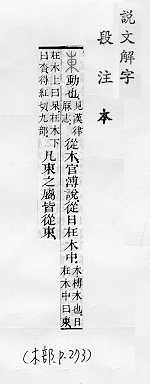 說文解字
段注本
東動也。見漢律厤志從木。官溥說從日在木中。木榑木也。日在木中曰東。
在木上曰杲。在木下曰杳。得紅切。九部。凡東之屬皆從東。
(木部, p.273)